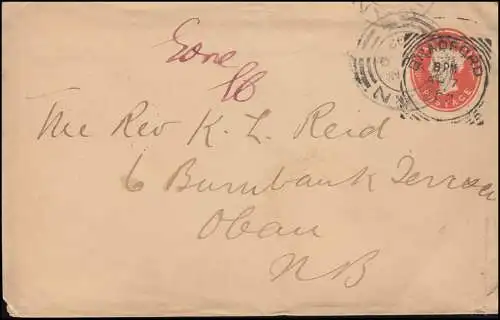 Gone
The Rev K. L. Reid
6 Burnbank Terrace
Oban
NB
BRADFORD
8 PM
POSTAGE